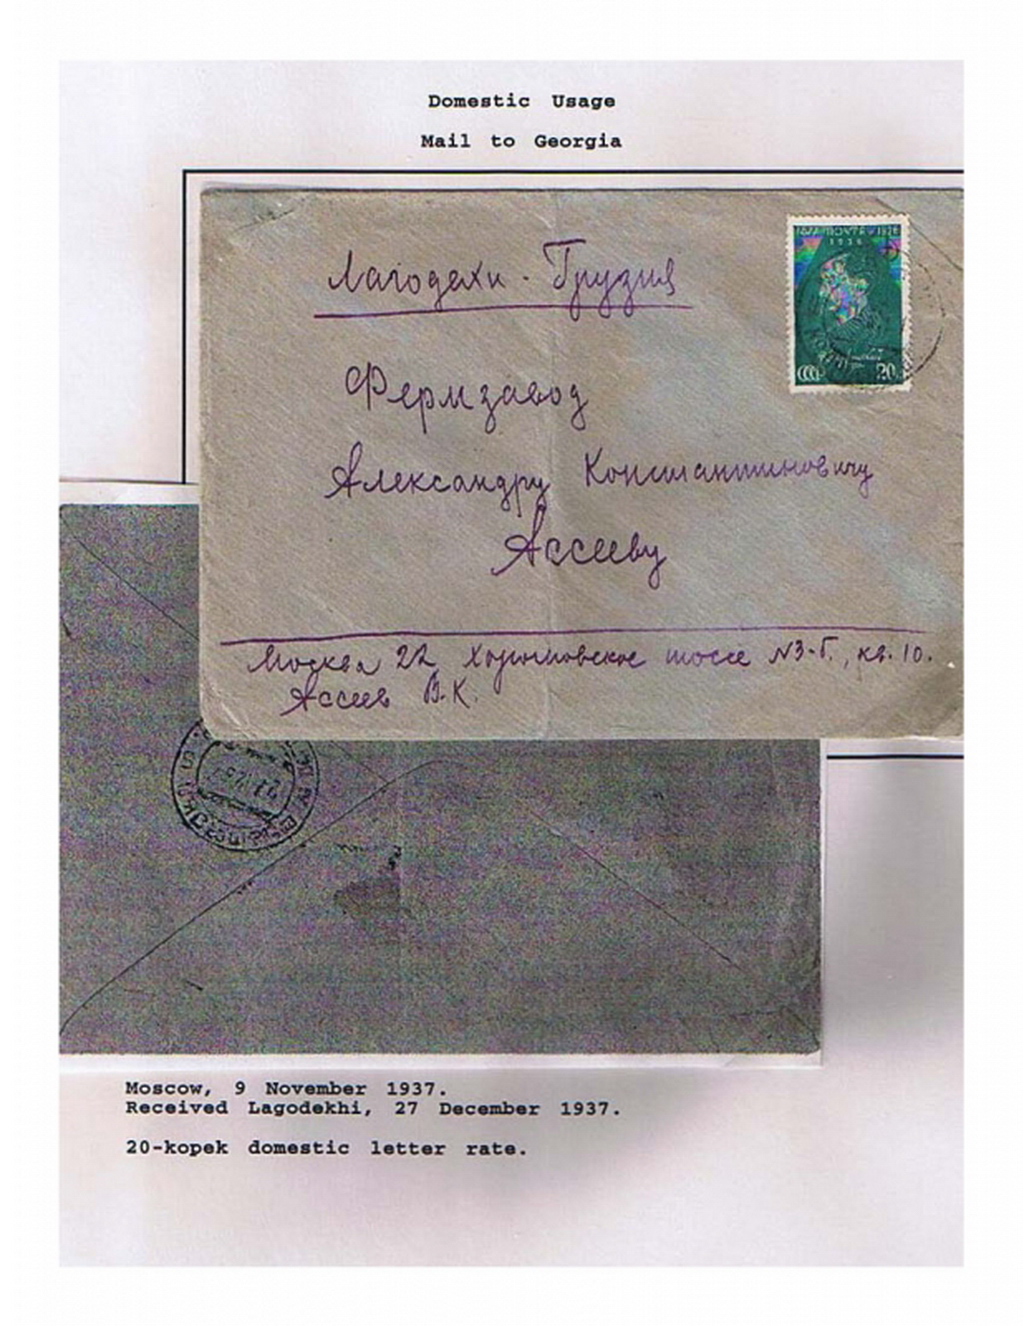 Domestic Usage
Mail to Georgia
Лагодехи - Грузия
Фермзавод
Александру Константиновичу
Ассееву
Москва 22 Хорошовское шоссе №3-Г., кв. 10.
Ассеев В.К.
ПОЧТА 1936
1936
СССР 20
Moscow, 9 November 1937.
Received Lagodekhi, 27 December 1937.
20-kopek domestic letter rate.